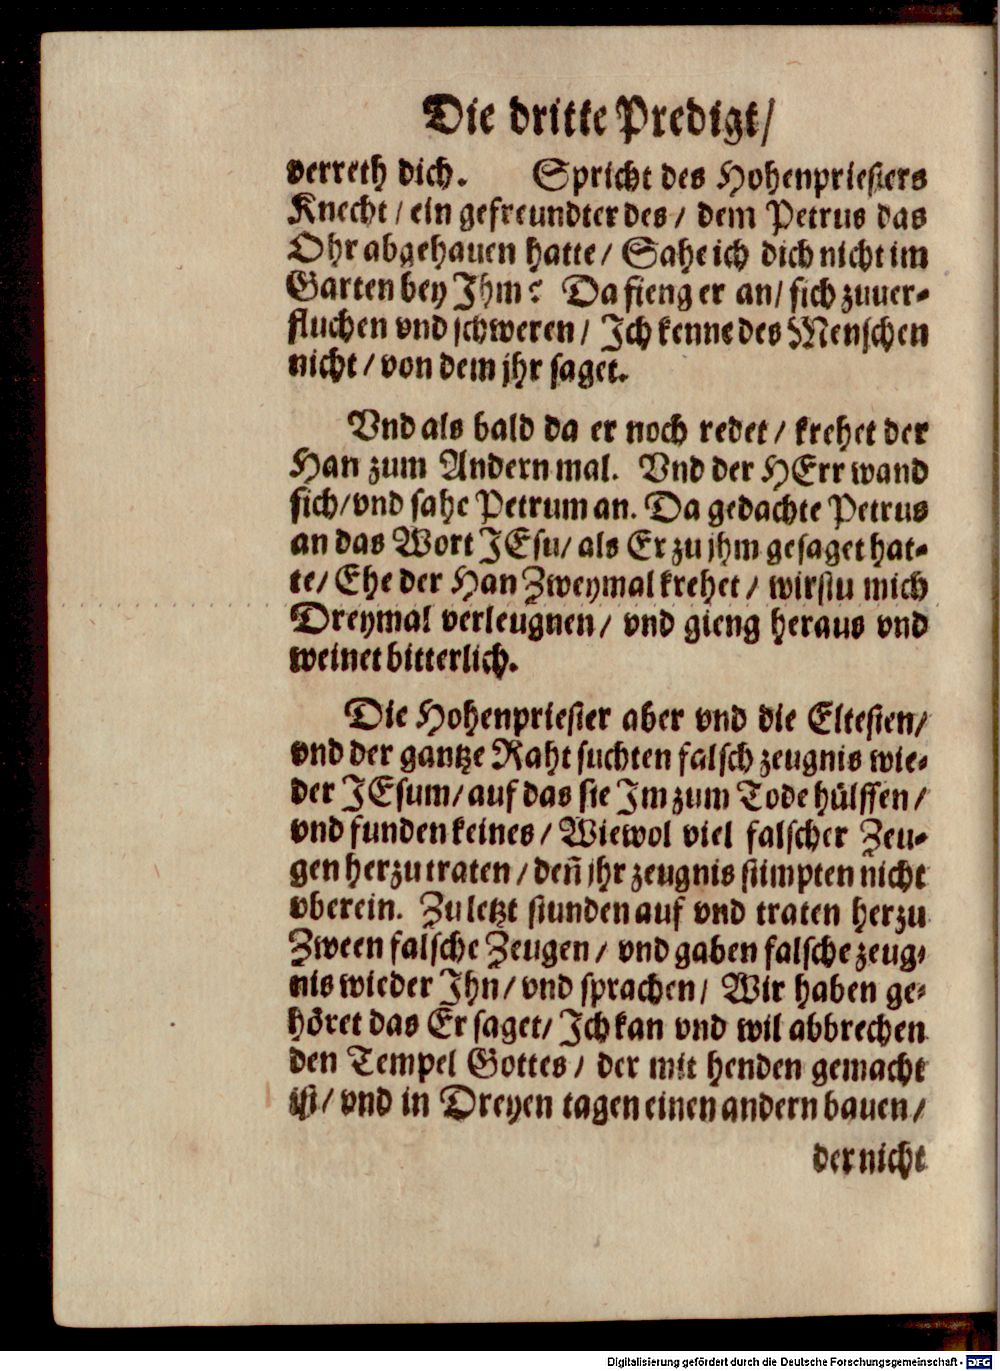 Die dritte Predigt/
verreth dich. Spricht des Hohenpriesters
Knecht/ ein gefreundter des/ dem Petrus das
Ohr abgehauen hatte/ Sahe ich dich nicht im
Garten bey Jhm? Da fieng er an/ sich zuuer-
fluchen vnd schweren/ Jch kenne des Menschen
nicht/ von dem jhr saget.
Vnd als bald da er noch redet/ krehet der
Han zum Andern mal. Vnd der HErr wand
sich/ vnd sahe Petrum an. Da gedachte Petrus
an das Wort JEsu/ als Er zu jhm gesaget hat-
te/ Ehe der Han Zweymal krehet/ wirstu mich
Dreymal verleugnen/ vnd gieng heraus vnd
weinet bitterlich.
Die Hohenpriester aber vnd die Eltesten/
vnd der gantze Raht suchten falsch zeugnis wie-
der JEsum/ auf das sie Jm zum Tode hülffen/
vnd funden keines/ Wiewol viel falscher Zeu-
gen herzu traten/ deñ jhr zeugnis stimpten nicht
vberein. Zu letzt stunden auf vnd traten herzu
Zween falsche Zeugen/ vnd gaben falsche zeug-
nis wieder Jhn/ vnd sprachen/ Wir haben ge-
höret das Er saget/ Jch kan vnd wil abbrechen
den Tempel Gottes/ der mit henden gemacht
ist/ vnd in Dreyen tagen einen andern bauen/
der nicht
Digitalisierung gefördert durch die Deutsche Forschungsgemeinschaft - DFG